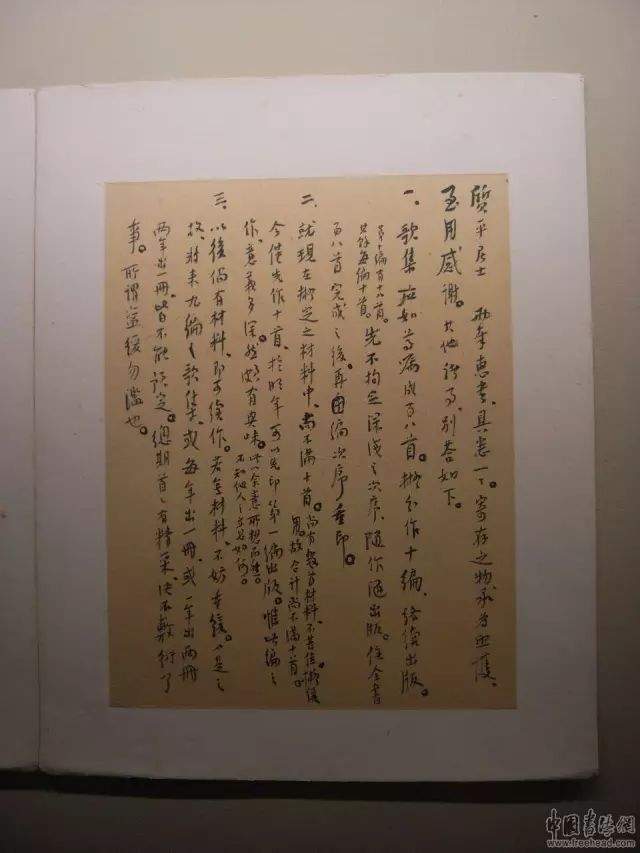 質平居士 兩奉惠書、具悉一一。寄存之物承爲照護、
至用感謝。其他諸事、別答如下。
一、歌集應如尊屬成百八首。擬分作十編、陸續出版。
首編有十八首。其餘每編十首。
先不拘定深淺之次序、隨作隨出版。俟全書
百八首完成之後、再固編次序重印。
二、就現在擬定之材料中、尚不滿十首。
尚有數首材料、不甚佳、擬緩用。故合計尚不滿十首。
今僅先作十首、於明年可以先印第一編出版。惟此編之
作、意義多深、然頗有興味。
此余意所想而然。不知他人之意見如何。
三、以後倘有材料、即可續作。若無材料、不妨重緩。以是之
故、將來九編之歌集、或每年出一冊、或一年出兩冊
兩年出一冊、皆不能預定。總期首首有精采、決不敷衍了
事。所謂寧緩勿濫也。
中国书法网
www.freehead.com